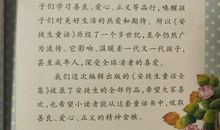 子们学习善良、爱心、正义等品格，唤醒孩
子们对美好生活的热爱和期待。所以《安
徒生童话》历经了一个多世纪，至今仍然广
为流传。它影响、温暖着一代又一代孩子，
甚至成年人，深受全球读者的喜爱。
我们这次编辑出版的《安徒生童话全
集》收录了安徒生的全部作品，希望大家喜
欢，也希望小读者能从这套童话书中，吸取
善良、爱心、正义的精神食粮。